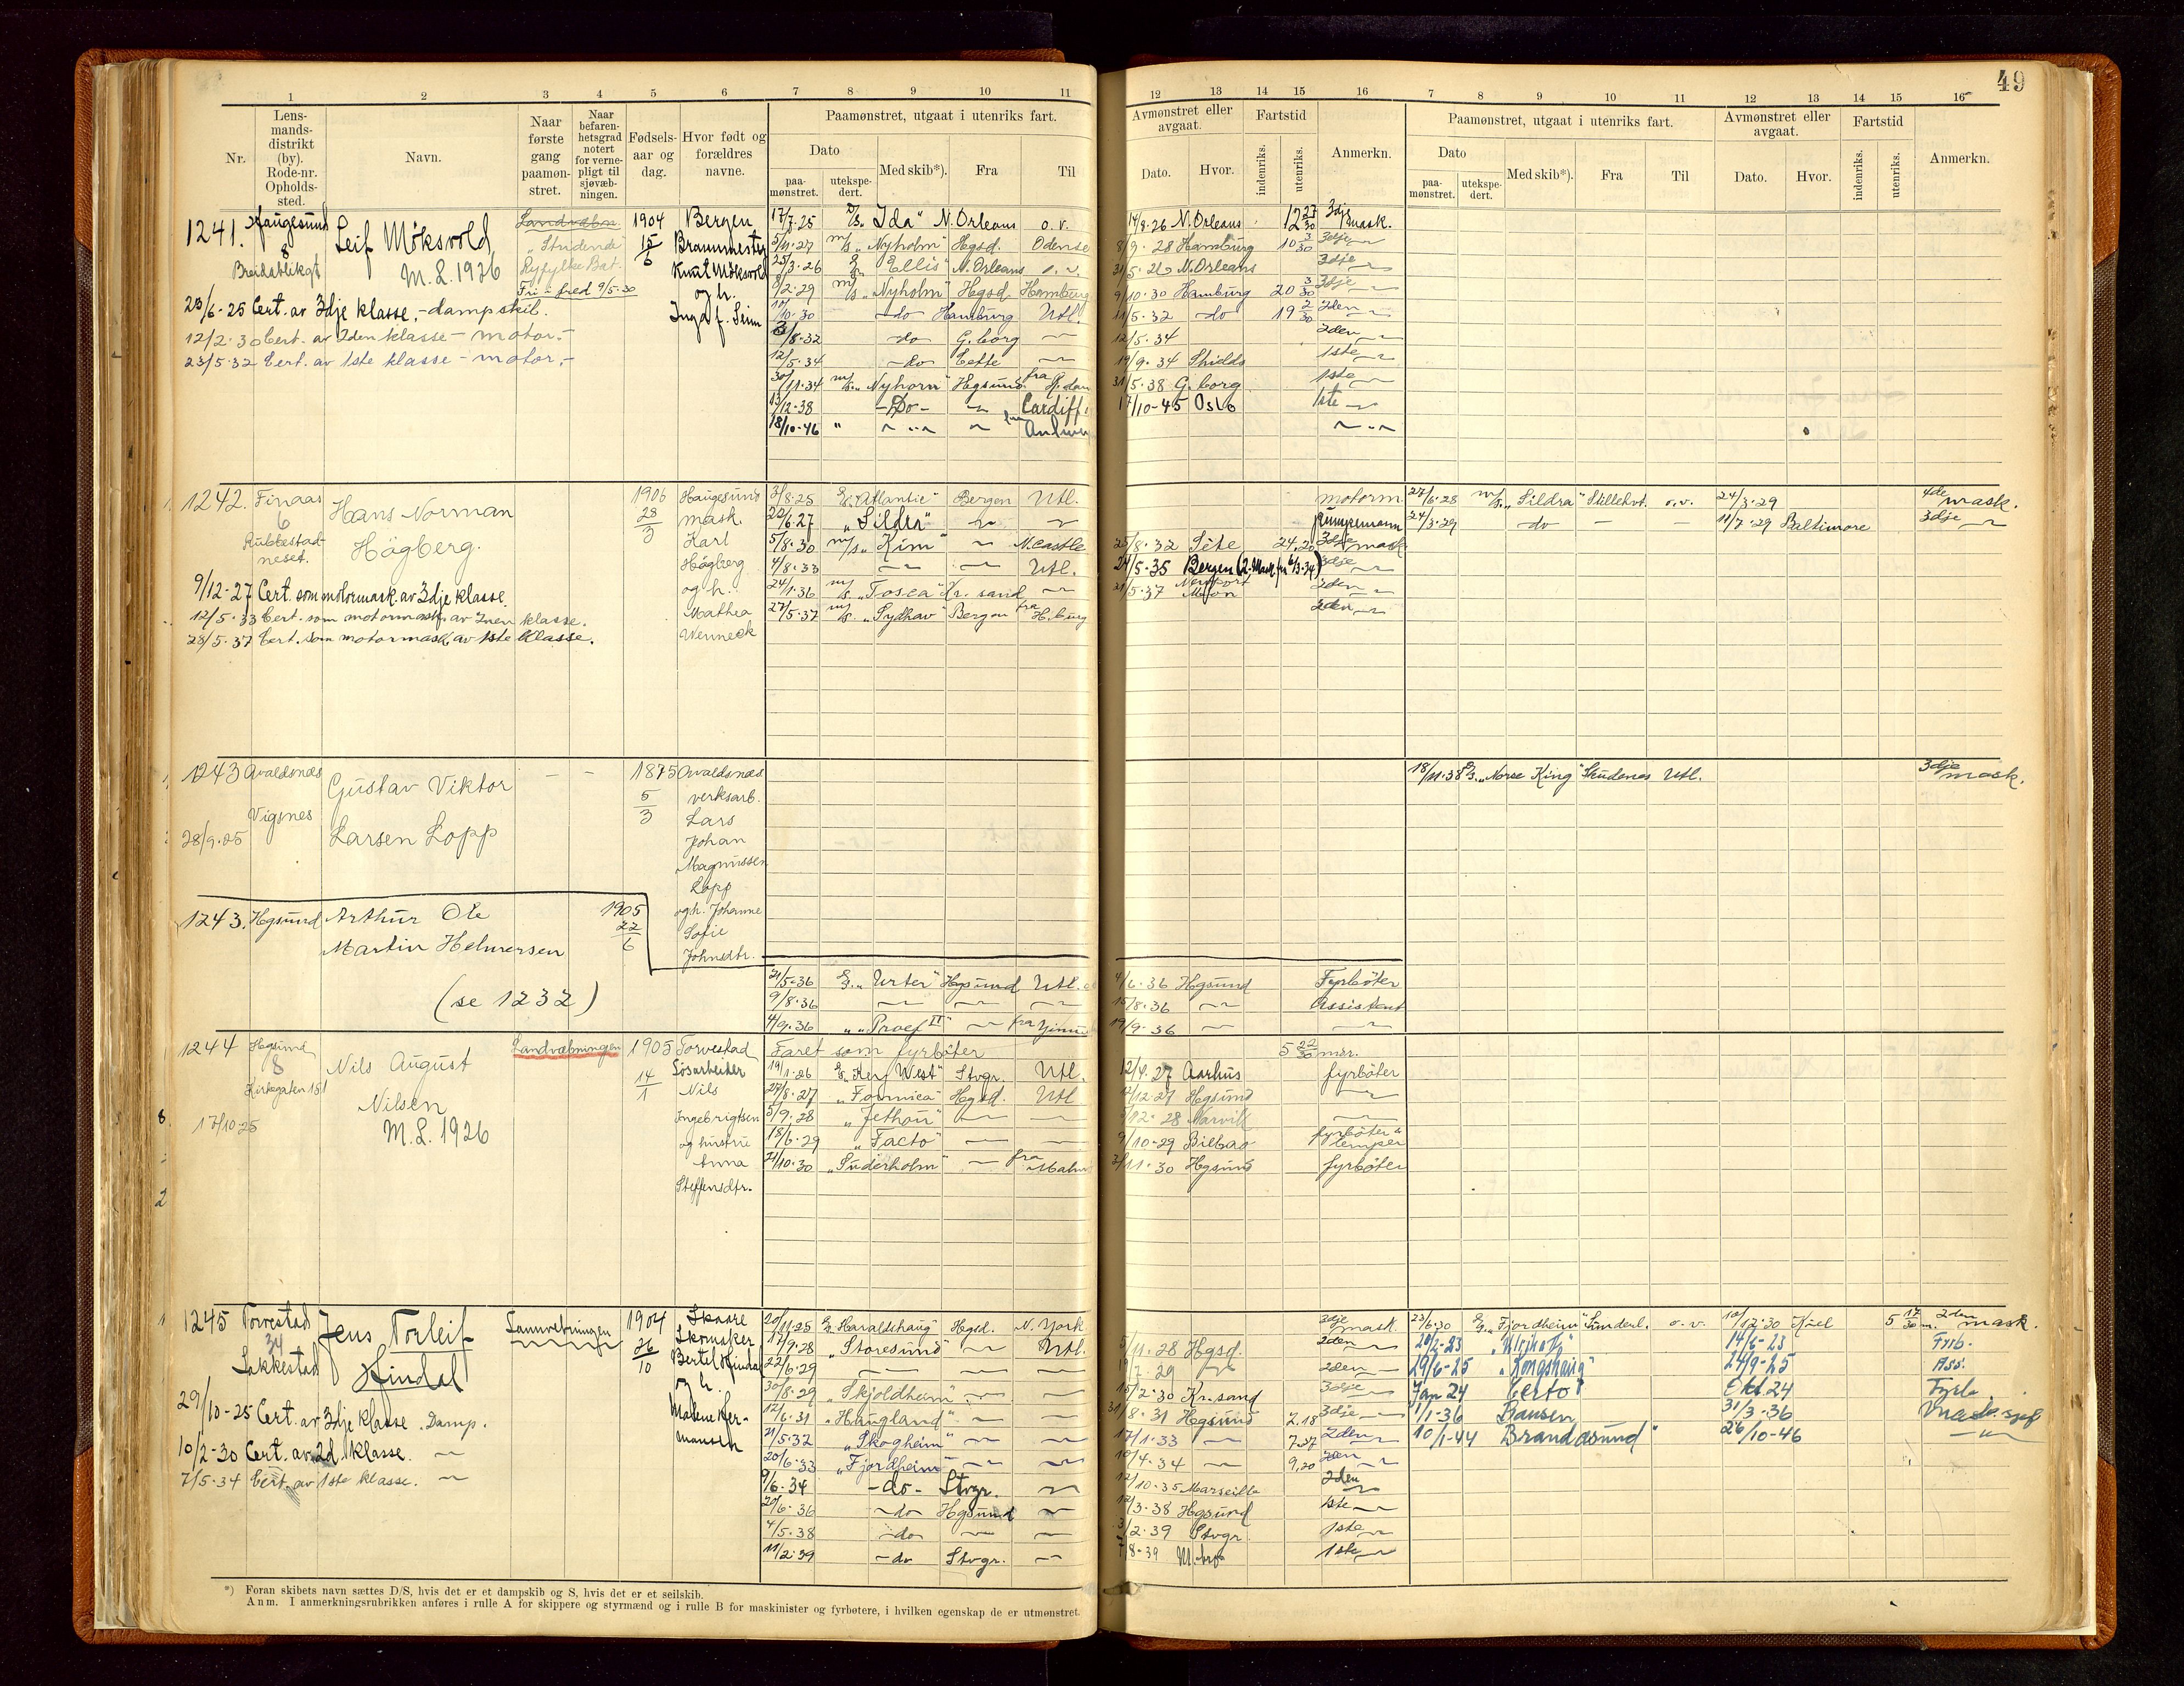 49
1 2 3 4 5 6 7 8 9 10 11 12 13 14 15 16 7 8 9 10 11 12 13 14 15 16
Nr.
Lensmandsdistrikt (by). Rode-nr. Opholdssted.
Navn.
Naar første gang paamønstret.
Naar befarenhetsgrad notert for vernepligt til sjøvæbningen.
Fødselsaar og dag.
Hvor født og forældres navne.
Paamønstret, utgaat i utenriks fart.
Dato
paamønstret. utekspedert.
Med skib*). Fra Til
Avmønstret eller avgaat.
Dato. Hvor.
Fartstid
indenriks. utenriks.
Anmerkn.
Paamønstret, utgaat i utenriks fart.
Dato
paamønstret. utekspedert.
Med skib*). Fra Til
Avmønstret eller avgaat.
Dato. Hvor.
Fartstid
indenriks. utenriks.
Anmerkn.
1241. Haugesund Leif Møksvold 1904 Bergen
8 M.L. 1926 15/6 Brannmester
Breidablikgt Knut Møksvold
og h.
Inga f. Seim
Landvæbn.
Ryfylke Bat.
Fri i fred 9/5-30
23/6-25 Cert. av 3dje klasse, - dampskib.
12/2-30 Cert. av 2den klasse - motor.-
23/5-32 Cert. av 1ste klasse - motor.-
17/7-25 D/S. "Ida" N. Orleans o.v. 14/8-26 N. Orleans 12 27/30 3dje mask.
5/11-27 m/s. "Nyholm" Hgsd. Odense 8/9-28 Hamburg 10 3/30 3dje
25/3-26 "Ellis" N. Orleans o.v. 31/5-26 N. Orleans 3dje
8/2-29 m/s. "Nyholm" Hgsd. Hamburg 9/10-30 Hamburg 20 3/30 3dje
10/10-30 -do- Hamburg Utl. 11/5-32 -do- 19 2/30 2den
3/8-32 -do- G.borg 12/5-34 2den
12/5-34 -do- Cette 19/9-34 Shields 1ste
30/11-34 m/s. "Nyhorn" Hgsund fra R.dam 31/5-38 G.borg 1ste
13/12-38 -Do- Cardiff 17/10-45 Oslo 1ste
18/10-46
1242. Finaas Hans Norman 1906 Haugesund
6 Högberg. 28/3 mask.
Rubbestadneset. Karl
Högberg
og h.
Mathea
Wenneck
9/12-27 Cert. som motormask. av 3dje klasse.
12/5-33 Cert. som motormask. av 2nen klasse.
28/5-37 Cert. som motormask. av 1ste klasse.
3/8-25 "Atlantic" Bergen Utl. motorm.
22/6-27 "Sildra" pumpemann
5/8-30 m/s. "Kim" N.castle 25/8-32 Sète 24.20 3dje mask
4/8-33 Utl. 24/5-35 Bergen (2. Mask fra 6/3-34) 3dje
24/1-36 m/s. "Tosca" Kr.sand 21/5-37 Newport Mon 2den
27/5-37 m/s. "Sydhav" Bergen fra H.burg 2den
27/6-28 m/s. "Sildra" Stillehvt. o.v. 24/3-29 4de mask.
24/3-29 -do- 11/7-29 Baltimore 3dje
1243 Avaldsnes Gustav Viktor - - 1875 Avaldsnes
Vigsnes Larsen Lopp 5/3 verksarb.
28/9-25 Lars
Johan
Magnussen
Lopp
og h. Johanne
Sofie
Johnsdtr.
18/11-38 D/S. "Norse King" Skudenes Utl. 3dje mask.
1243. Hgsund Arthur Ole 1905
Martin Helmersen 22/6
(se 1232)
21/5-36 "Urter" Hgsund Utl. 4/6-36 Hgsund Fyrböter
9/8-36 15/8-36 Assistent
4/9-36 "Proef II" fra 19/9-36
1244 Hgsund Nils August Landvæbningen 1905 Torvestad
8 Nilsen 14/1 Lösarbeider
Kirkegaten 181 M.L. 1926 Nils
17/10-25 Ingebrigtsen
og hustru
Anna
Steffensdtr.
Faret som fyrböter 5 22/30 mnr.
19/1-26 "Key West" Stvgr. Utl. 12/4-27 Aarhus fyrböter
27/8-27 Hgsd. Utl. 12/12-27 Hgsund
5/9-28 "Jethou" 12-28 Narvik
18/6-29 "Facto" 9/10-29 Bilbao fyrböter lemper
21/10-30 "Süderholm" fra Malmö 3/11-30 Hgsund fyrböter
1245 Torvestad Jens Torleif 1904 Skaare
34 Hindal 26/10 Skomaker
Lakkestad Bertel Hindal
og h.
Malene Hermansen
29/10-25 Cert. av 3dje klasse. Damp.
10/2-30 Cert. av 2d. klasse.
7/5-34 Cert. av 1ste klasse.
20/11-25 "Haraldshaug" Hgsd. N. York 3dje mask.
17/9-28 "Storesund" Utl. 5/11-28 Hgsd. 2den
22/6-29 7-29 2den
30/8-29 "Skjoldheim" 15/2-30 Kr.sand 3dje
12/6-31 "Haugland" 31/8-31 Hgsund 2.18 3dje
21/5-32 "Skogheim" 17/1-33 7.27 2den
20/6-33 "Fjordheim" 10/4-34 9.20 2den
9/6-34 -do- Stvgr. 12/10-35 Marseille 2den
20/6-36 -do- Hgsund 12/3-38 Hgsund 1ste
4/5-38 -do- 3/2-39 Stvgr. 1ste
11/2-39 -do- Stvgr. 7/8-39 1ste
23/6-30 "Fjordheim" Sunderl. o.v. 10/12-30 Kiel 5 17/30 m. 2den mask.
20/2-23 14/6-23 Fyrb.
29/6-25 "Kongshaug" 24/9-25 Ass.
Jan 24 Certo Okt. 24 Fyrb.
1/1-36 Bansen 31/3-36 Mask.sjef
10/1-44 Brandasund 26/10-46
*) Foran skibets navn sættes D/S, hvis det er et dampskib og S, hvis det er et seilskib.
Anm. I anmerkningsrubrikken anføres i rulle A for skippere og styrmænd og i rulle B for maskinister og fyrbøtere, i hvilken egenskap de er utmønstret.